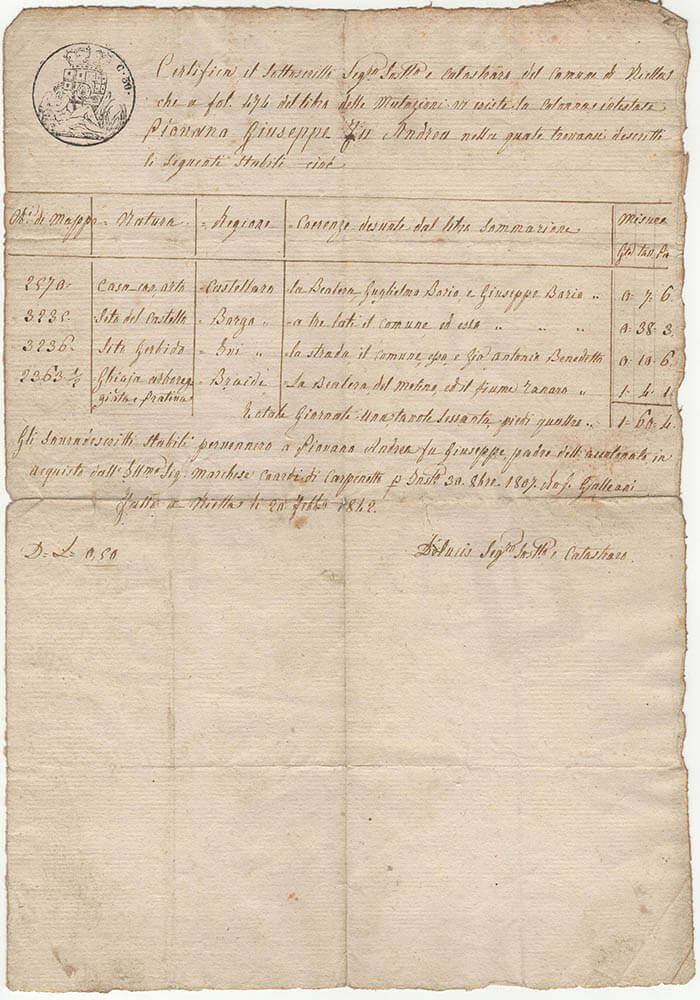 C. 30.
Certifica il sottoscritto Segro Sostto e Catastraro del Comune di Niella
che a fol. 474 del libro delle Mutazioni vi esiste la Colonna intestata
Piovano Giuseppe fu Andrea nella quale trovansi descritti
li seguenti stabili cioè
No. di Mappa = Natura = Regione = Coerenze desunte dal libro Sommarione Misura
Gte tav. Pi
2570 Casa con orto = Castellaro = la Bealera Guglielmo Borio, e Giuseppe Borio „ 0. 7. 6.
= 3235 Sito del Castello = Borgo „ = a tre lati il comune ed esso „ „ „ 0. 38. 3.
3236. Sito Gerbido = Ivi „ = la strada il comune, esso, e Gio Antonio Benedetto 0. 10. 6.
2363 ½ Ghiaja
e Prativa = Braide = La Bealera del molino, ed il fiume Tanaro „ 1. 4. 1.
Totale Giornate una tavole sessanta, piedi quattro „ 1. 60. 4.
Gli sovradescritti stabili pervennero a Piovano Andrea fu Giuseppe, padre dell'accolonato in
acquisto dall' Illmo Sig. Marchese di Carpenetto p 30. 8bre. 1807.
Niella li 20 1842.
D. L. 0,50 Segro Sostto e Catastraro.